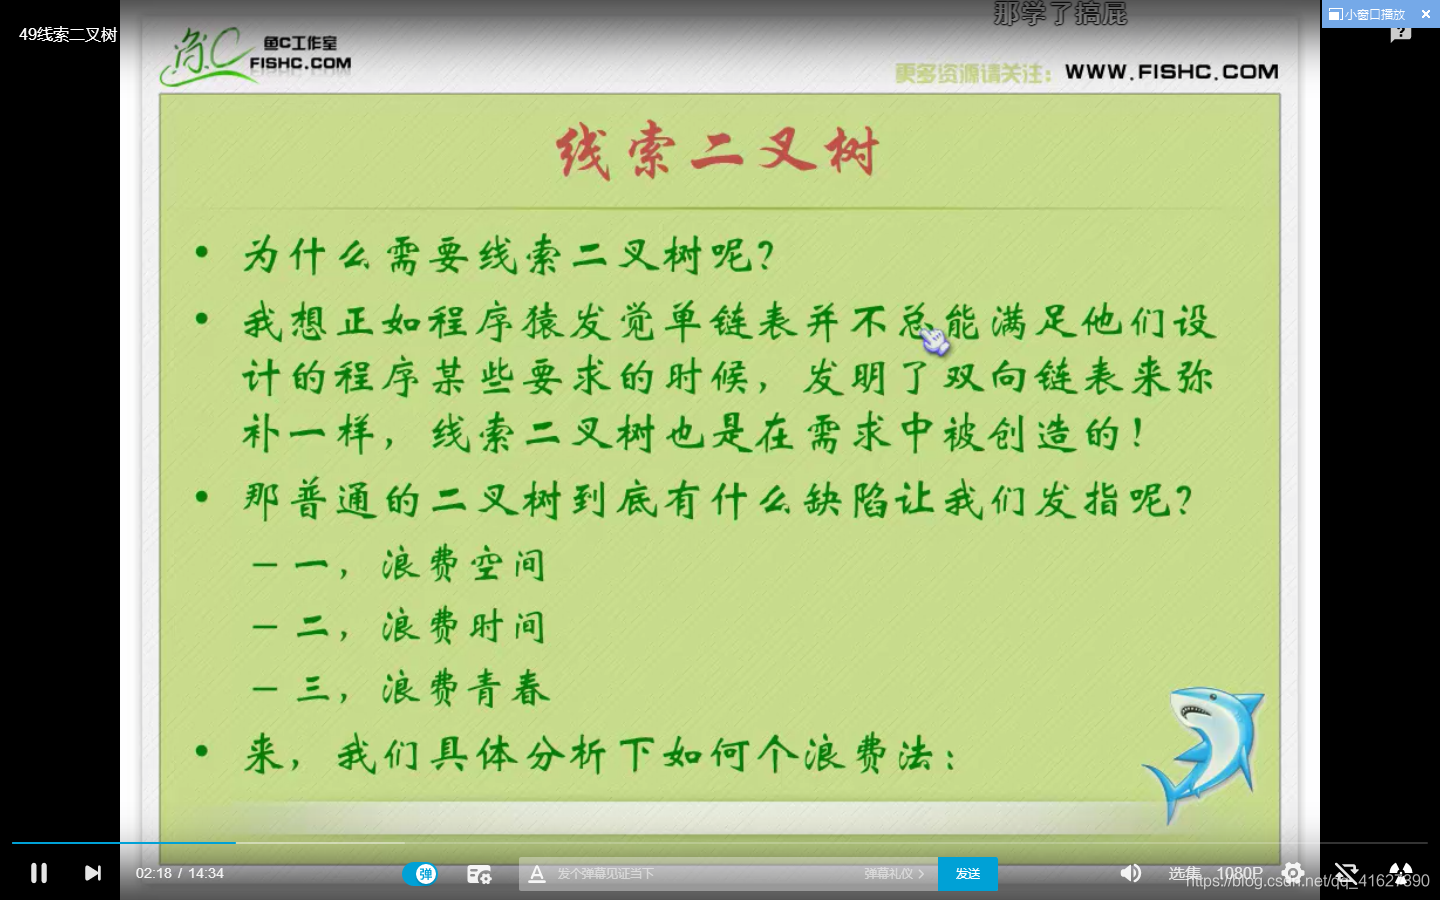 那学了搞屁
小窗口播放
49线索二叉树
鱼C工作室
FISHC.COM
更多资源请关注: WWW.FISHC.COM
线索二叉树
• 为什么需要线索二叉树呢?
• 我想正如程序猿发觉单链表并不总能满足他们设
计的程序某些要求的时候，发明了双向链表来弥
补一样，线索二叉树也是在需求中被创造的!
• 那普通的二叉树到底有什么缺陷让我们发指呢?
– 一，浪费空间
– 二，浪费时间
– 三，浪费青春
• 来，我们具体分析下如何个浪费法:
02:18 / 14:34
弹
A 发个弹幕见证当下
弹幕礼仪 >
发送
选集
1080P
https://blog.csdn.net/qq_41627390